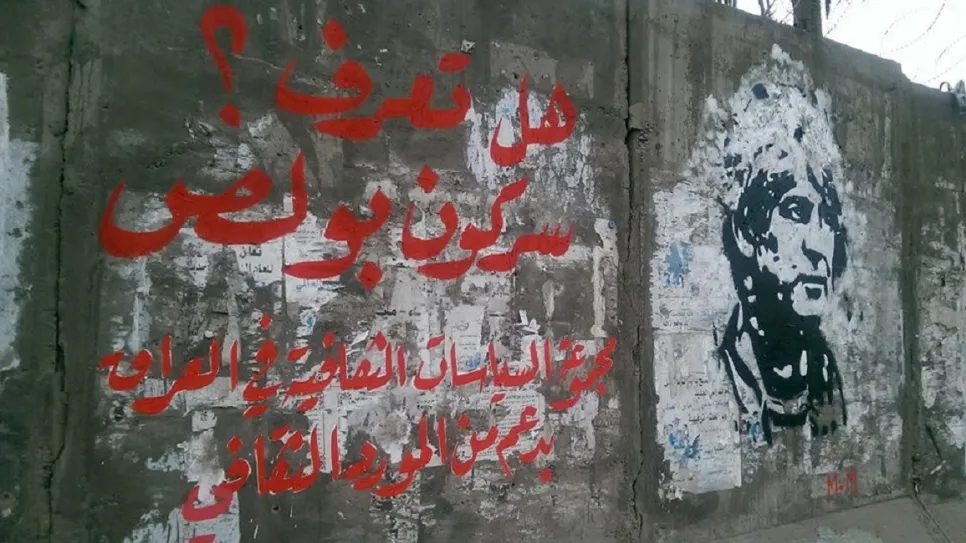 هل تعرف ؟
سركون بولص
مجموعة السياسات الثقافية في العراق
بدعم من المورد الثقافي
M.M